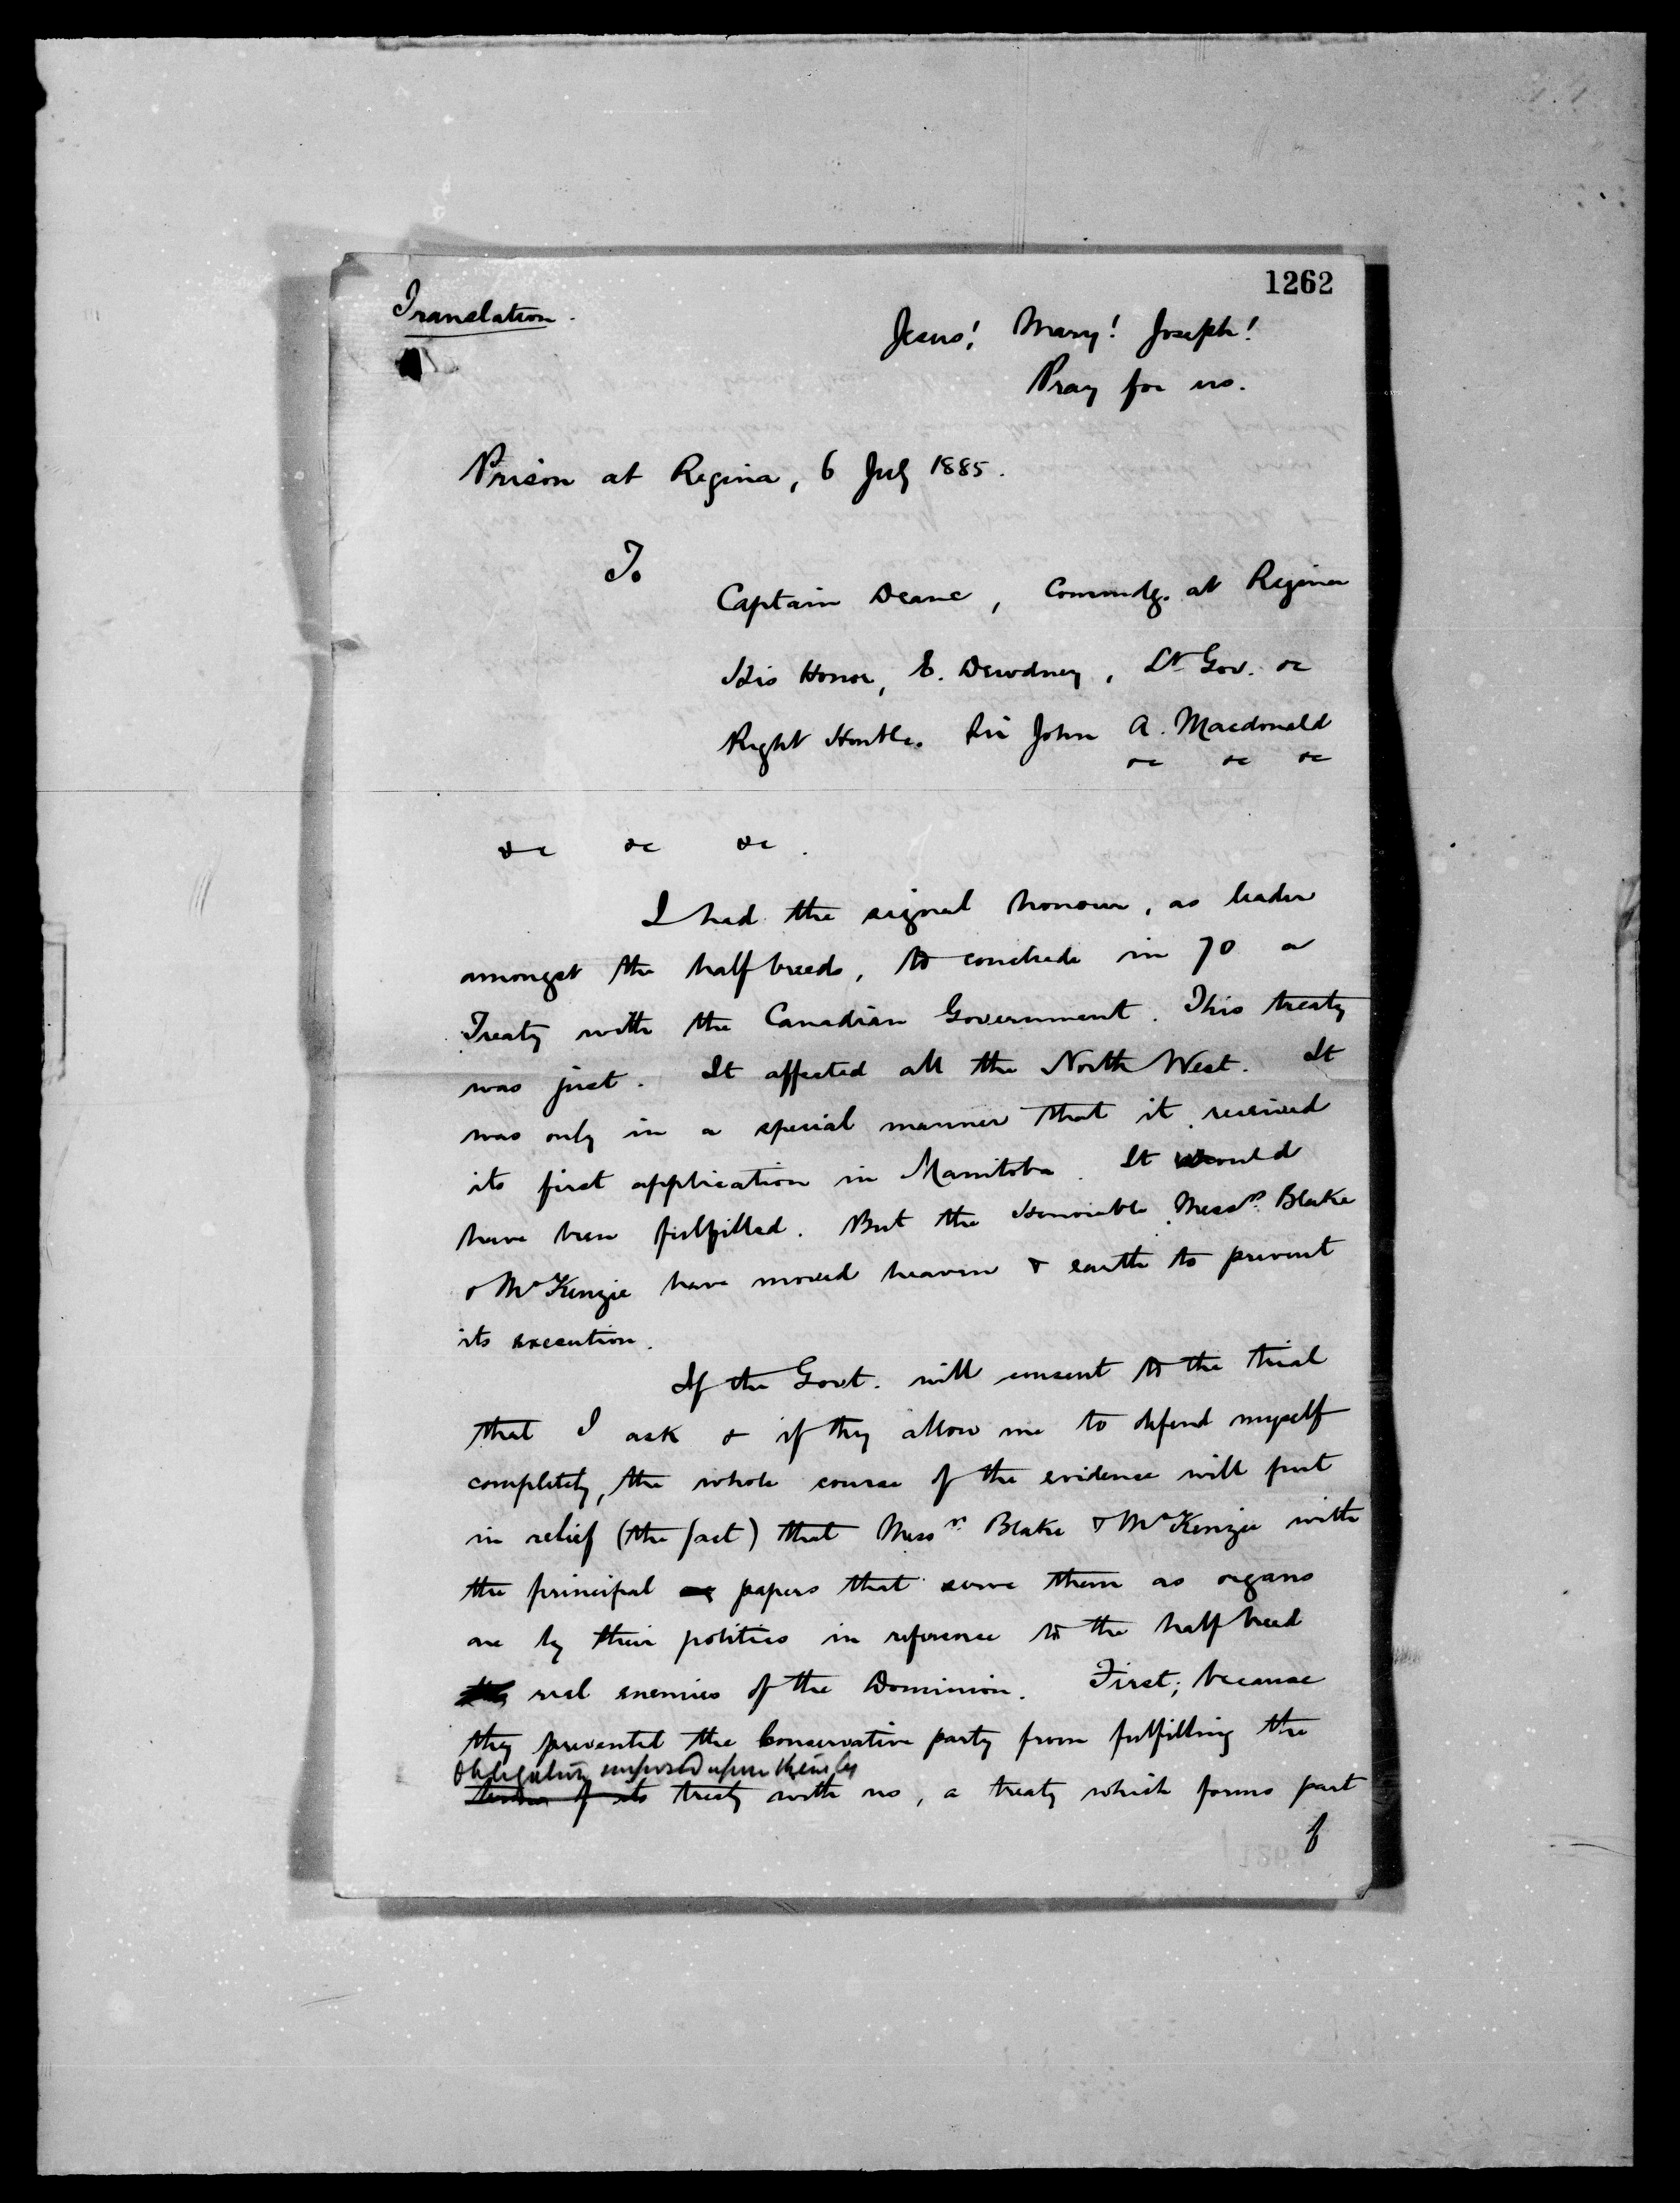 1262
Translation.
Jesus! Mary! Joseph!
Pray for us.
Prison at Regina, 6 July 1885.
To
Captain Deane, Commdg. at Regina
His Honor, E. Dewdney, Lt Gov. &c
Right Honble. Sir John A. Macdonald
&c &c &c
&c &c &c.
I had the signal honour, as leader
amongst the halfbreeds, to conclude in 70 a
Treaty with the Canadian Government. This treaty
was just. It affected all the North West. It
was only in a special manner that it received
its first application in Manitoba. It would
have been fulfilled. But the Honorable Messrs. Blake
& McKenzie have moved heaven & earth to prevent
its execution.
If the Govt. will consent to the trial
that I ask & if they allow me to defend myself
completely, the whole course of the evidence will put
in relief (the fact) that Messrs. Blake & McKenzie with
the principal papers that serve them as organs
are by their politics in reference to the half breed
real enemies of the Dominion. First; because
they prevented the Conservative party from fulfilling the
obligation imposed upon them by
of its treaty with us, a treaty which forms part
of